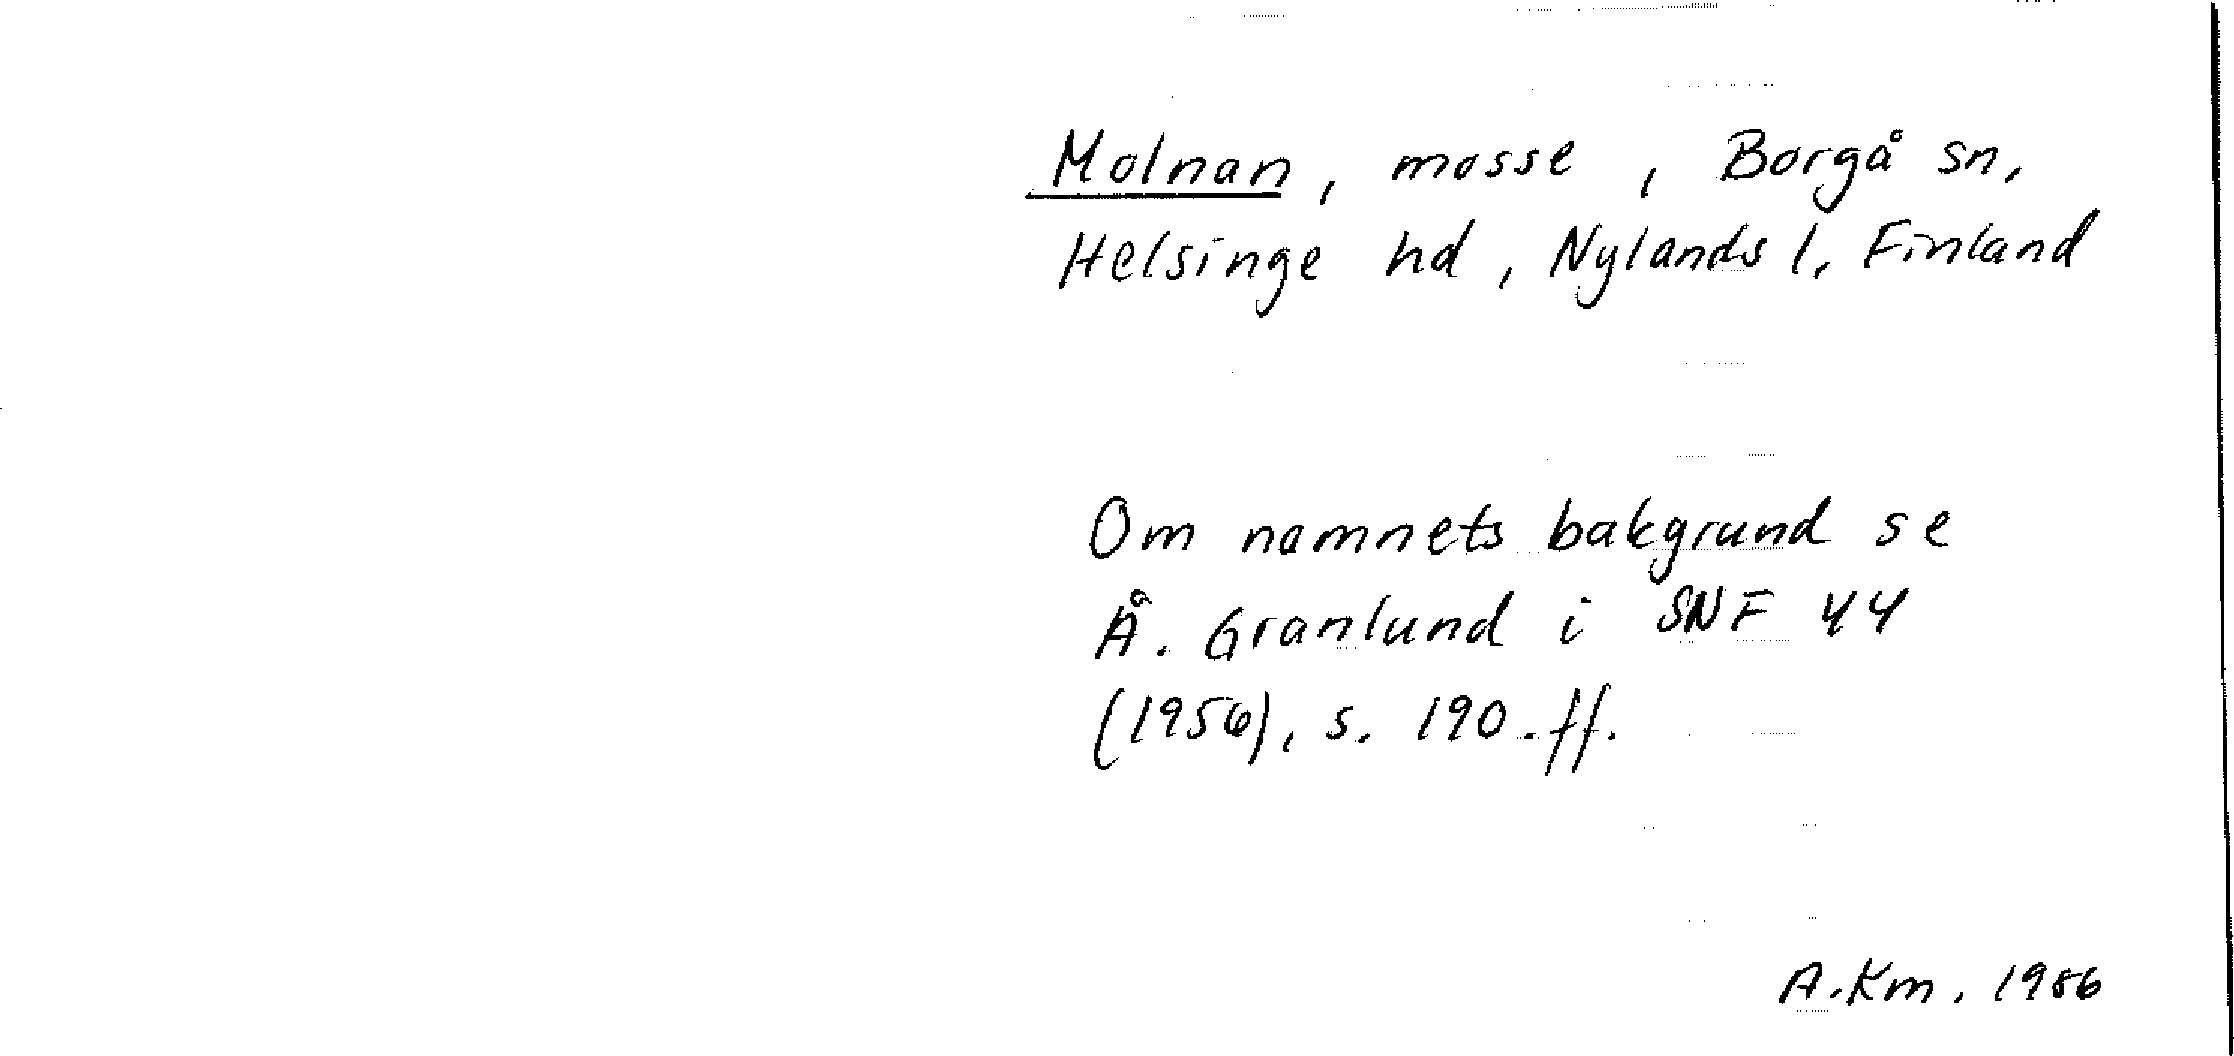 Molnan, mosse, Borgå sn,
Helsinge hd, Nylands l, Finland
Om namnets bakgrund se
Å. Granlund i SNF 44
(1956), s. 190.ff.
A.Km. 1986